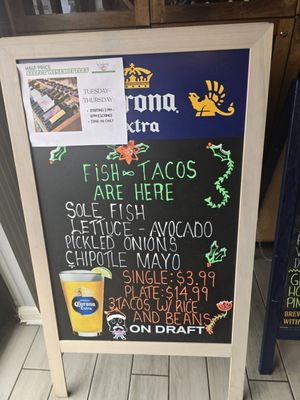 HALF PRICE
SELECT WINE BOTTLES
TUESDAY-
THURSDAY
Corona
Extra
FISH TACOS
ARE HERE
SOLE FISH
LETTUCE - AVOCADO
PICKLED ONIONS
CHIPOTLE MAYO
SINGLE: $3.99
PLATE: $14.99
3 TACOS W/ RICE
AND BEANS
Corona
Extra
ON DRAFT